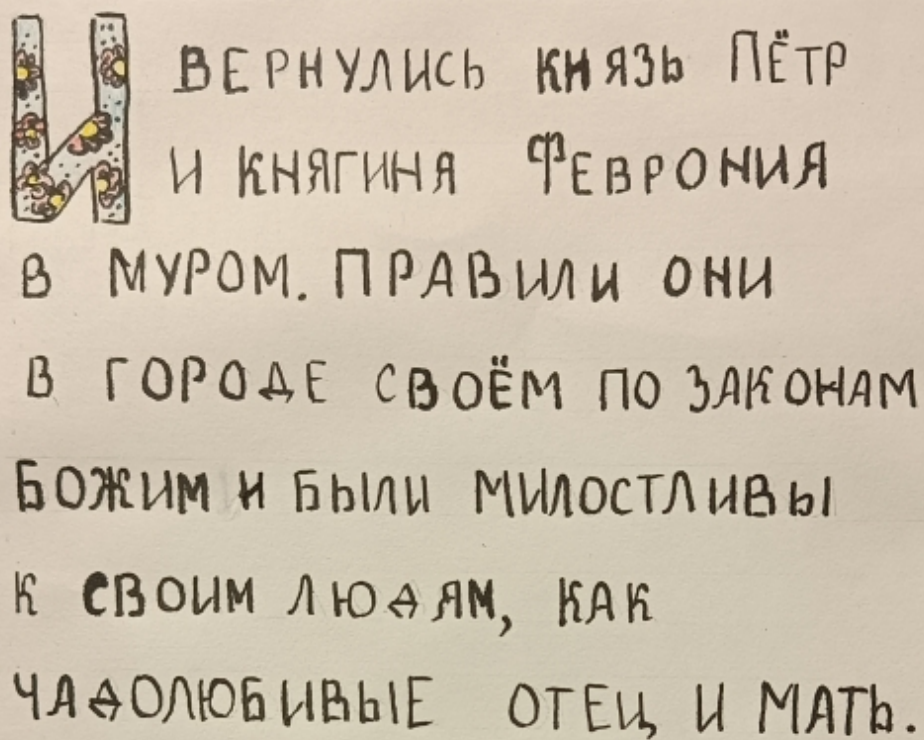 И ВЕРНУЛИСЬ КНЯЗЬ ПЁТР
И КНЯГИНЯ ФЕВРОНИЯ
В МУРОМ. ПРАВИЛИ ОНИ
В ГОРОДЕ СВОЁМ ПО ЗАКОНАМ
БОЖИМ И БЫЛИ МИЛОСТЛИВЫ
К СВОИМ ЛЮДЯМ, КАК
ЧАДОЛЮБИВЫЕ ОТЕЦ И МАТЬ.